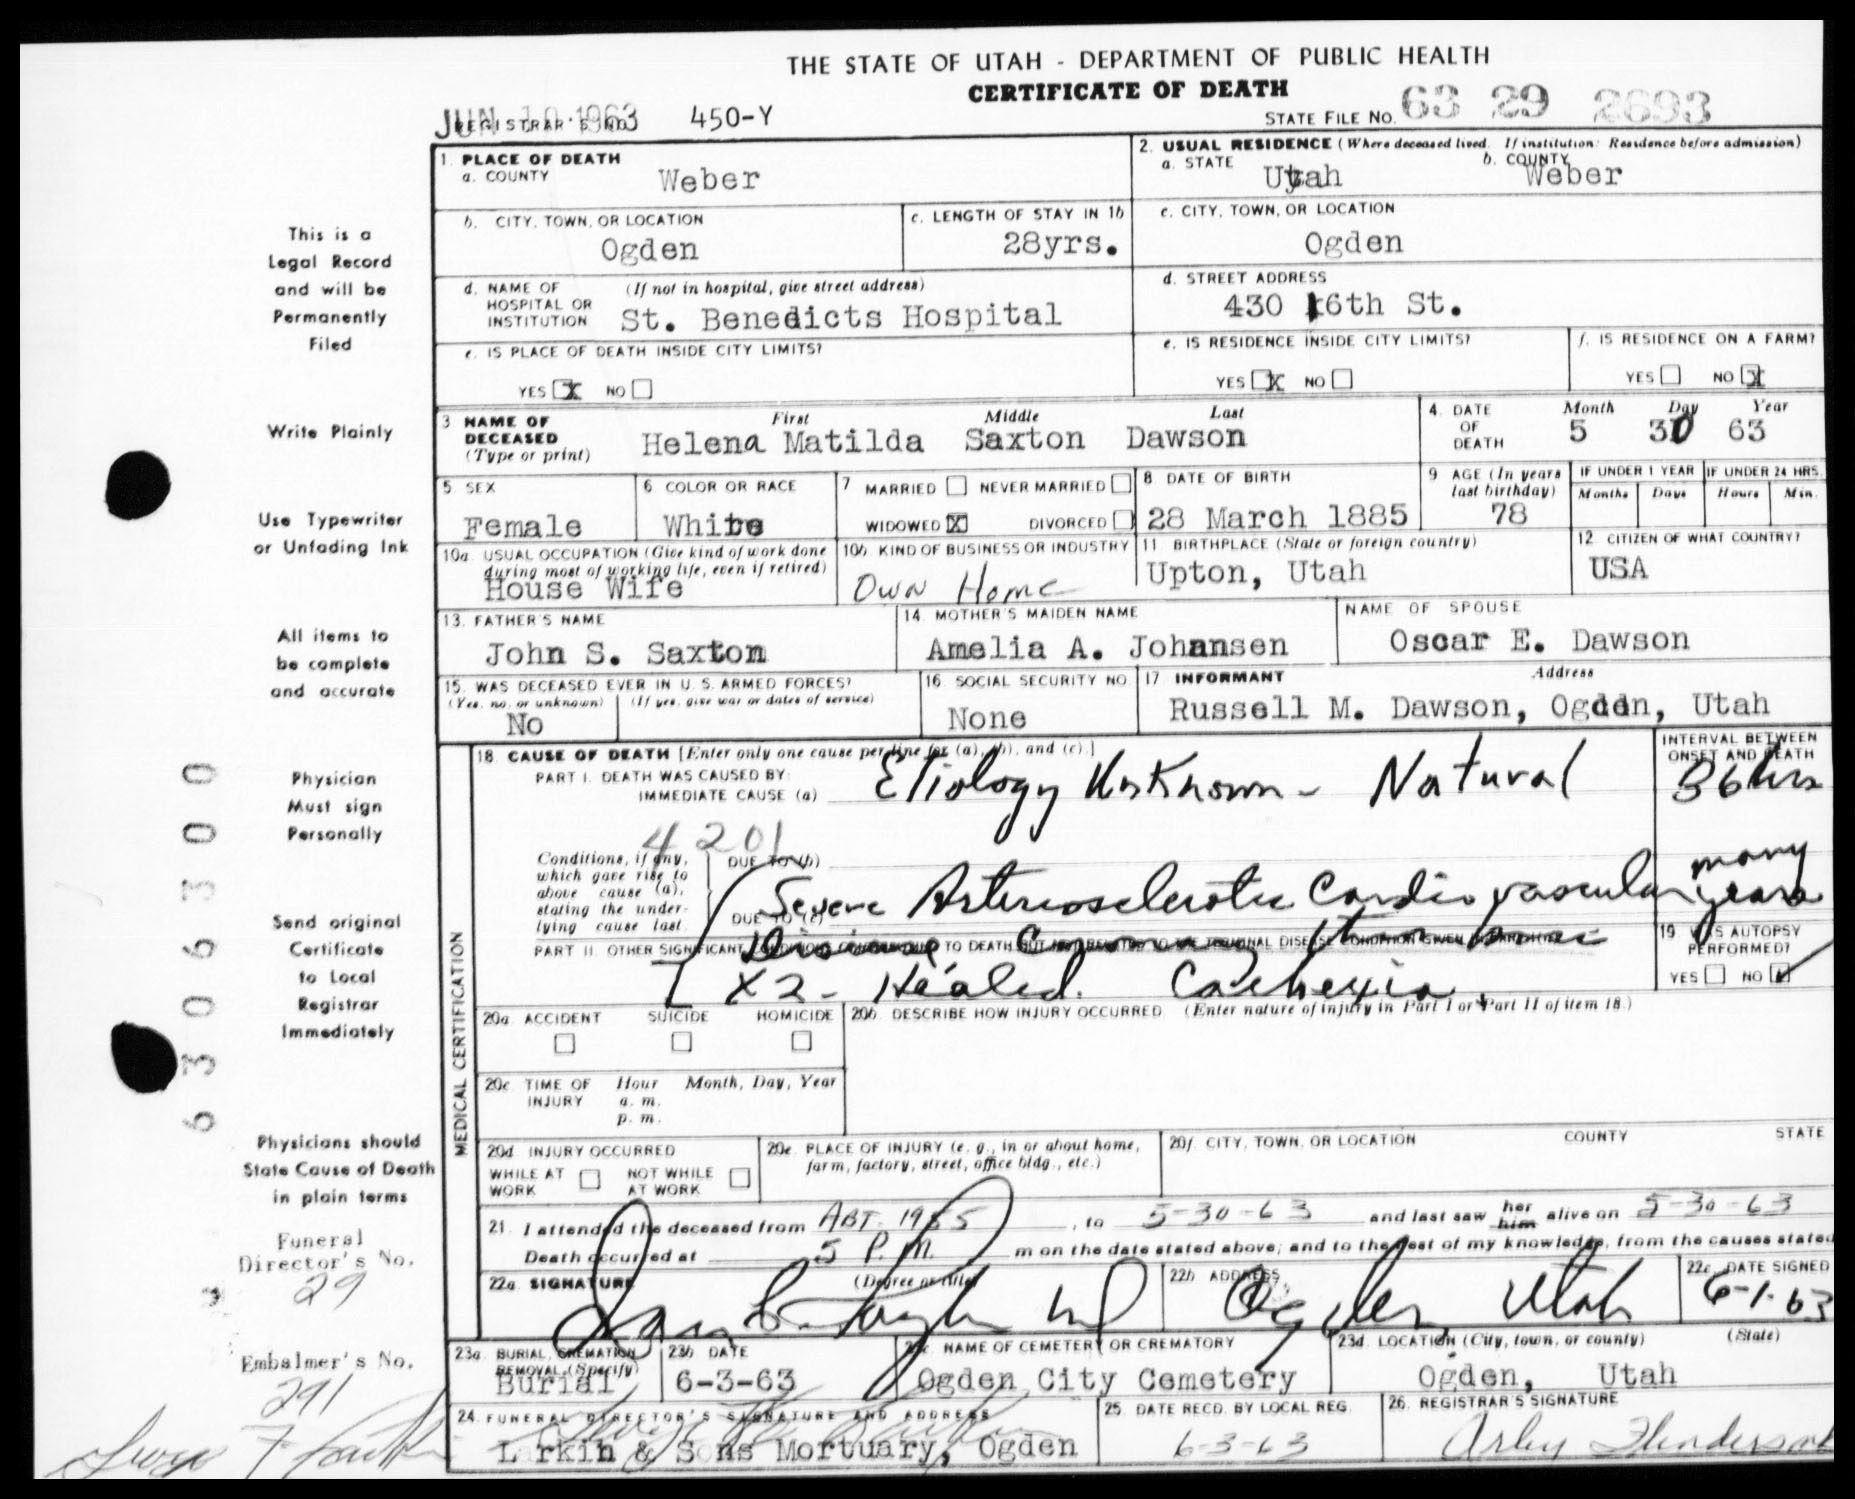 THE STATE OF UTAH - DEPARTMENT OF PUBLIC HEALTH
CERTIFICATE OF DEATH
JUN 10 1963 REGISTRAR'S NO. 450-Y STATE FILE NO. 63 29 2693
1. PLACE OF DEATH
a. COUNTY Weber
2. USUAL RESIDENCE (Where deceased lived. If institution: Residence before admission)
a. STATE Utah b. COUNTY Weber
b. CITY, TOWN, OR LOCATION Ogden
c. LENGTH OF STAY IN 1b 28yrs.
c. CITY, TOWN, OR LOCATION Ogden
d. NAME OF HOSPITAL OR INSTITUTION (If not in hospital, give street address) St. Benedicts Hospital
d. STREET ADDRESS 430 16th St.
e. IS PLACE OF DEATH INSIDE CITY LIMITS? YES X NO
e. IS RESIDENCE INSIDE CITY LIMITS? YES X NO
f. IS RESIDENCE ON A FARM? YES NO X
3 NAME OF DECEASED (Type or print) First Middle Last
Helena Matilda Saxton Dawson
4. DATE OF DEATH Month Day Year
5 30 63
5. SEX Female
6 COLOR OR RACE White
7 MARRIED NEVER MARRIED
WIDOWED X DIVORCED
8 DATE OF BIRTH 28 March 1885
9 AGE (In years last birthday) 78
IF UNDER 1 YEAR Months Days
IF UNDER 24 HRS. Hours Min.
10a. USUAL OCCUPATION (Give kind of work done during most of working life, even if retired) House Wife
10b. KIND OF BUSINESS OR INDUSTRY Own Home
11 BIRTHPLACE (State or foreign country) Upton, Utah
12. CITIZEN OF WHAT COUNTRY? USA
13. FATHER'S NAME John S. Saxton
14 MOTHER'S MAIDEN NAME Amelia A. Johansen
NAME OF SPOUSE Oscar E. Dawson
15. WAS DECEASED EVER IN U. S. ARMED FORCES?
(Yes, no, or unknown) (If yes, give war or dates of service)
No
16 SOCIAL SECURITY NO. None
17 INFORMANT Address
Russell M. Dawson, Ogden, Utah
18. CAUSE OF DEATH [Enter only one cause per line for (a), (b), and (c).]
PART I. DEATH WAS CAUSED BY:
IMMEDIATE CAUSE (a) Etiology Unknown - Natural
INTERVAL BETWEEN ONSET AND DEATH
36 hrs
4201
Conditions, if any, which gave rise to above cause (a), stating the underlying cause last.
DUE TO (b)
DUE TO (c) Severe Arteriosclerotic Cardiovascular many years
PART II. OTHER SIGNIFICANT CONDITIONS CONTRIBUTING TO DEATH BUT NOT RELATED TO THE TERMINAL DISEASE CONDITION GIVEN IN PART I(a)
Disease
X2 - Healed. Cachexia.
19. WAS AUTOPSY PERFORMED?
YES NO
MEDICAL CERTIFICATION
20a. ACCIDENT SUICIDE HOMICIDE
20b DESCRIBE HOW INJURY OCCURRED (Enter nature of injury in Part I or Part II of item 18.)
20c TIME OF INJURY Hour Month, Day, Year
a. m.
p. m.
20d INJURY OCCURRED
WHILE AT WORK NOT WHILE AT WORK
20e. PLACE OF INJURY (e. g., in or about home, farm, factory, street, office bldg., etc.)
20f. CITY, TOWN, OR LOCATION COUNTY STATE
21. I attended the deceased from ABT. 1955, to 5-30-63 and last saw her him alive on 5-30-63
Death occurred at 5 P.M. m on the date stated above; and to the best of my knowledge, from the causes stated
22a. SIGNATURE (Degree or title)
22b ADDRESS Ogden, Utah
22c. DATE SIGNED 6-1-63
23a. BURIAL, CREMATION, REMOVAL (Specify) Burial
23b DATE 6-3-63
23c. NAME OF CEMETERY OR CREMATORY Ogden City Cemetery
23d. LOCATION (City, town, or county) (State)
Ogden, Utah
24. FUNERAL DIRECTOR'S SIGNATURE AND ADDRESS
Larkin & Sons Mortuary, Ogden
25. DATE RECD. BY LOCAL REG. 6-3-63
26. REGISTRAR'S SIGNATURE
This is a
Legal Record
and will be
Permanently
Filed
Write Plainly
Use Typewriter
or Unfading Ink
All items to
be complete
and accurate
Physician
Must sign
Personally
Send original
Certificate
to Local
Registrar
Immediately
Physicians should
State Cause of Death
in plain terms
Funeral
Director's No.
29
Embalmer's No.
291
6306300